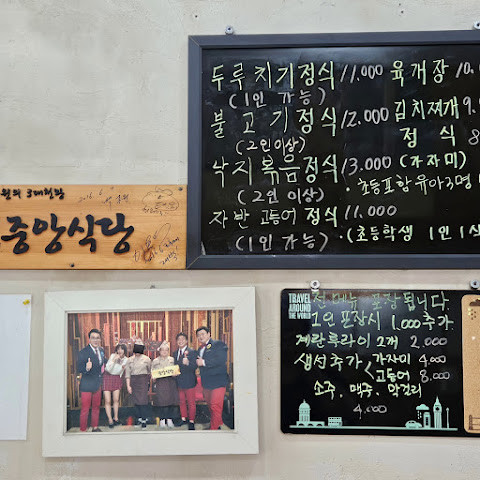 두루치기정식 11.000 육개장 10.0
(1인 가능)
불고기정식 12.000 김치찌개 9.0
(2인이상) 정식 8
낙지볶음정식 13.000 (가자미)
(2인 이상) · 초등포함 유아3명
자반 고등어 정식 11.000
(1인 가능) · (초등학생 1인 1식
3대천왕
2016.
중앙식당
TRAVEL
AROUND
THE WORLD
전 메뉴 포장됩니다
1인 포장시 1.000추가
계란후라이 2개 2.000
생선추가 가자미 4.000
고등어 8.000
소주. 맥주. 막걸리
4.000